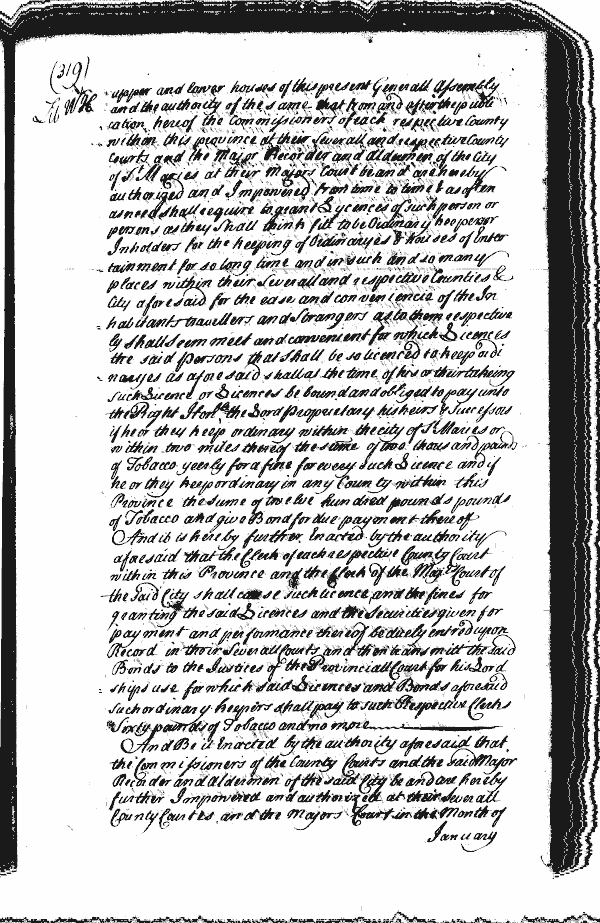 (319)
Lib WH
upper and lower houses of this present Generall Assembly
and the authority of the same that from and after the publi
cation hereof the Commissioners of each respective County
within this province at their Severall and respective County
Courts and the Major Recorder and Aldermen of the City
of St. Maries at their Majors Court be and are hereby
authorized and Impowered from time to time & as often
as need shall require to grant Lycences of such person or
persons as they shall think fitt to be Ordinary keeper or
Inholders for the keeping of Ordinaryes & houses of Enter
tainment for so long time and in such and so many
places within their Severall and respective Counties &
City aforesaid for the ease and conveniencie of the In
habitants travellers and Strangers as to them respective
ly shall seem meet and convenient for which Licences
the said persons that shall be so licenced to keep ordi
naryes as aforesaid shall at the time of his or their takeing
such Licence or Licences be bound and obliged to pay unto
the Right Honble the Lord Proprietary his heirs & Successors
if he or they keep ordinary within the city of St Maries or
within two miles thereof the same of two thousand pounds
of Tobacco yeerly for a fine for every such Licence and if
he or they keep ordinary in any County within this
Province the sume of twelve hundred pounds pounds
of Tobacco and give Bond for due payment thereof
And it is hereby further Enacted by the authority
aforesaid that the Clerk of each respective County Court
within this Province and the Clerk of the Majrs Court of
the said City shall cause such licence and the fines for
granting the said Licences and the Securities given for
payment and performance thereof be duely entred upon
Record in their Severall Courts and then transmitt the said
Bonds to the Justices of the Provinciall Court for his Lord
ships use for which said Licences and Bonds aforesaid
such ordinary keepers shall pay to such Respective Clerks
Sixty pounds of Tobacco and no more
And Be it Enacted by the authority aforesaid that
the Commissioners of the County Courts and the said Major
Recorder and Aldermen of the said City be and are hereby
further Impowered and authorized at their Severall
County Courtes and the Majors Court in the Month of
January